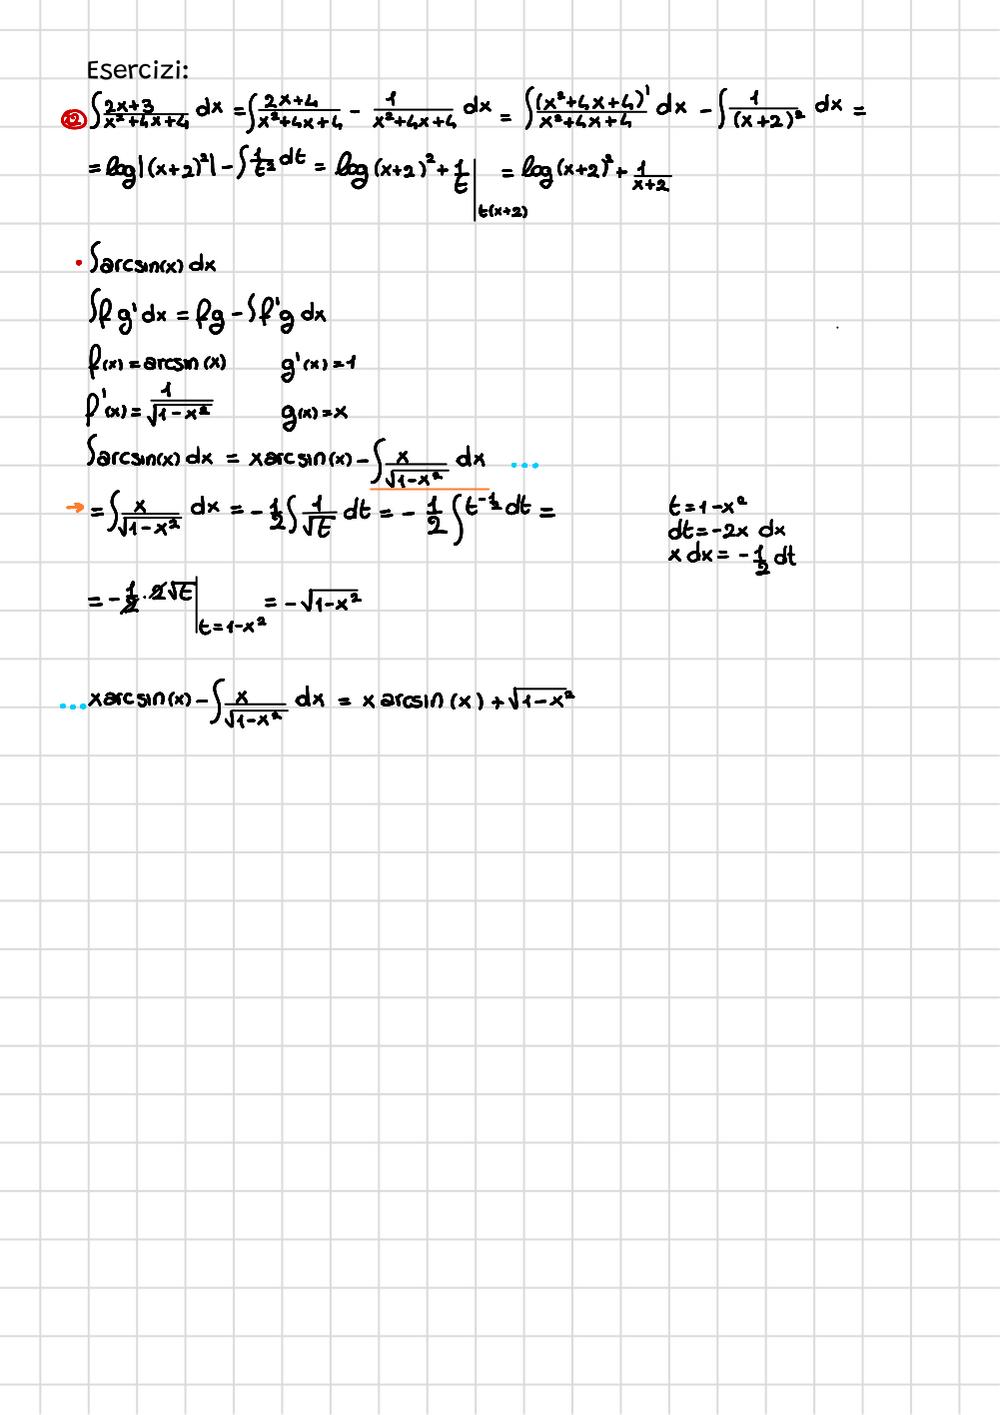 Esercizi:
22 ∫ (2x+3)/(x²+4x+4) dx = ∫ (2x+4)/(x²+4x+4) - 1/(x²+4x+4) dx = ∫ (x²+4x+4)'/(x²+4x+4) dx - ∫ 1/(x+2)² dx =
= log|(x+2)²| - ∫ 1/t² dt = log(x+2)² + 1/t |t(x+2) = log(x+2)² + 1/(x+2)
• ∫arcsin(x) dx
∫f g' dx = fg - ∫f'g dx
f(x) = arcsin(x) g'(x) = 1
f'(x) = 1/√(1-x²) g(x) = x
∫arcsin(x) dx = xarcsin(x) - ∫ x/√(1-x²) dx ...
→ = ∫ x/√(1-x²) dx = -1/2 ∫ 1/√t dt = - 1/2 ∫ t^(-1/2) dt = t = 1-x²
dt = -2x dx
x dx = -1/2 dt
= -1/2 · 2√t |t=1-x² = -√(1-x²)
... xarcsin(x) - ∫ x/√(1-x²) dx = x arcsin(x) + √(1-x²)